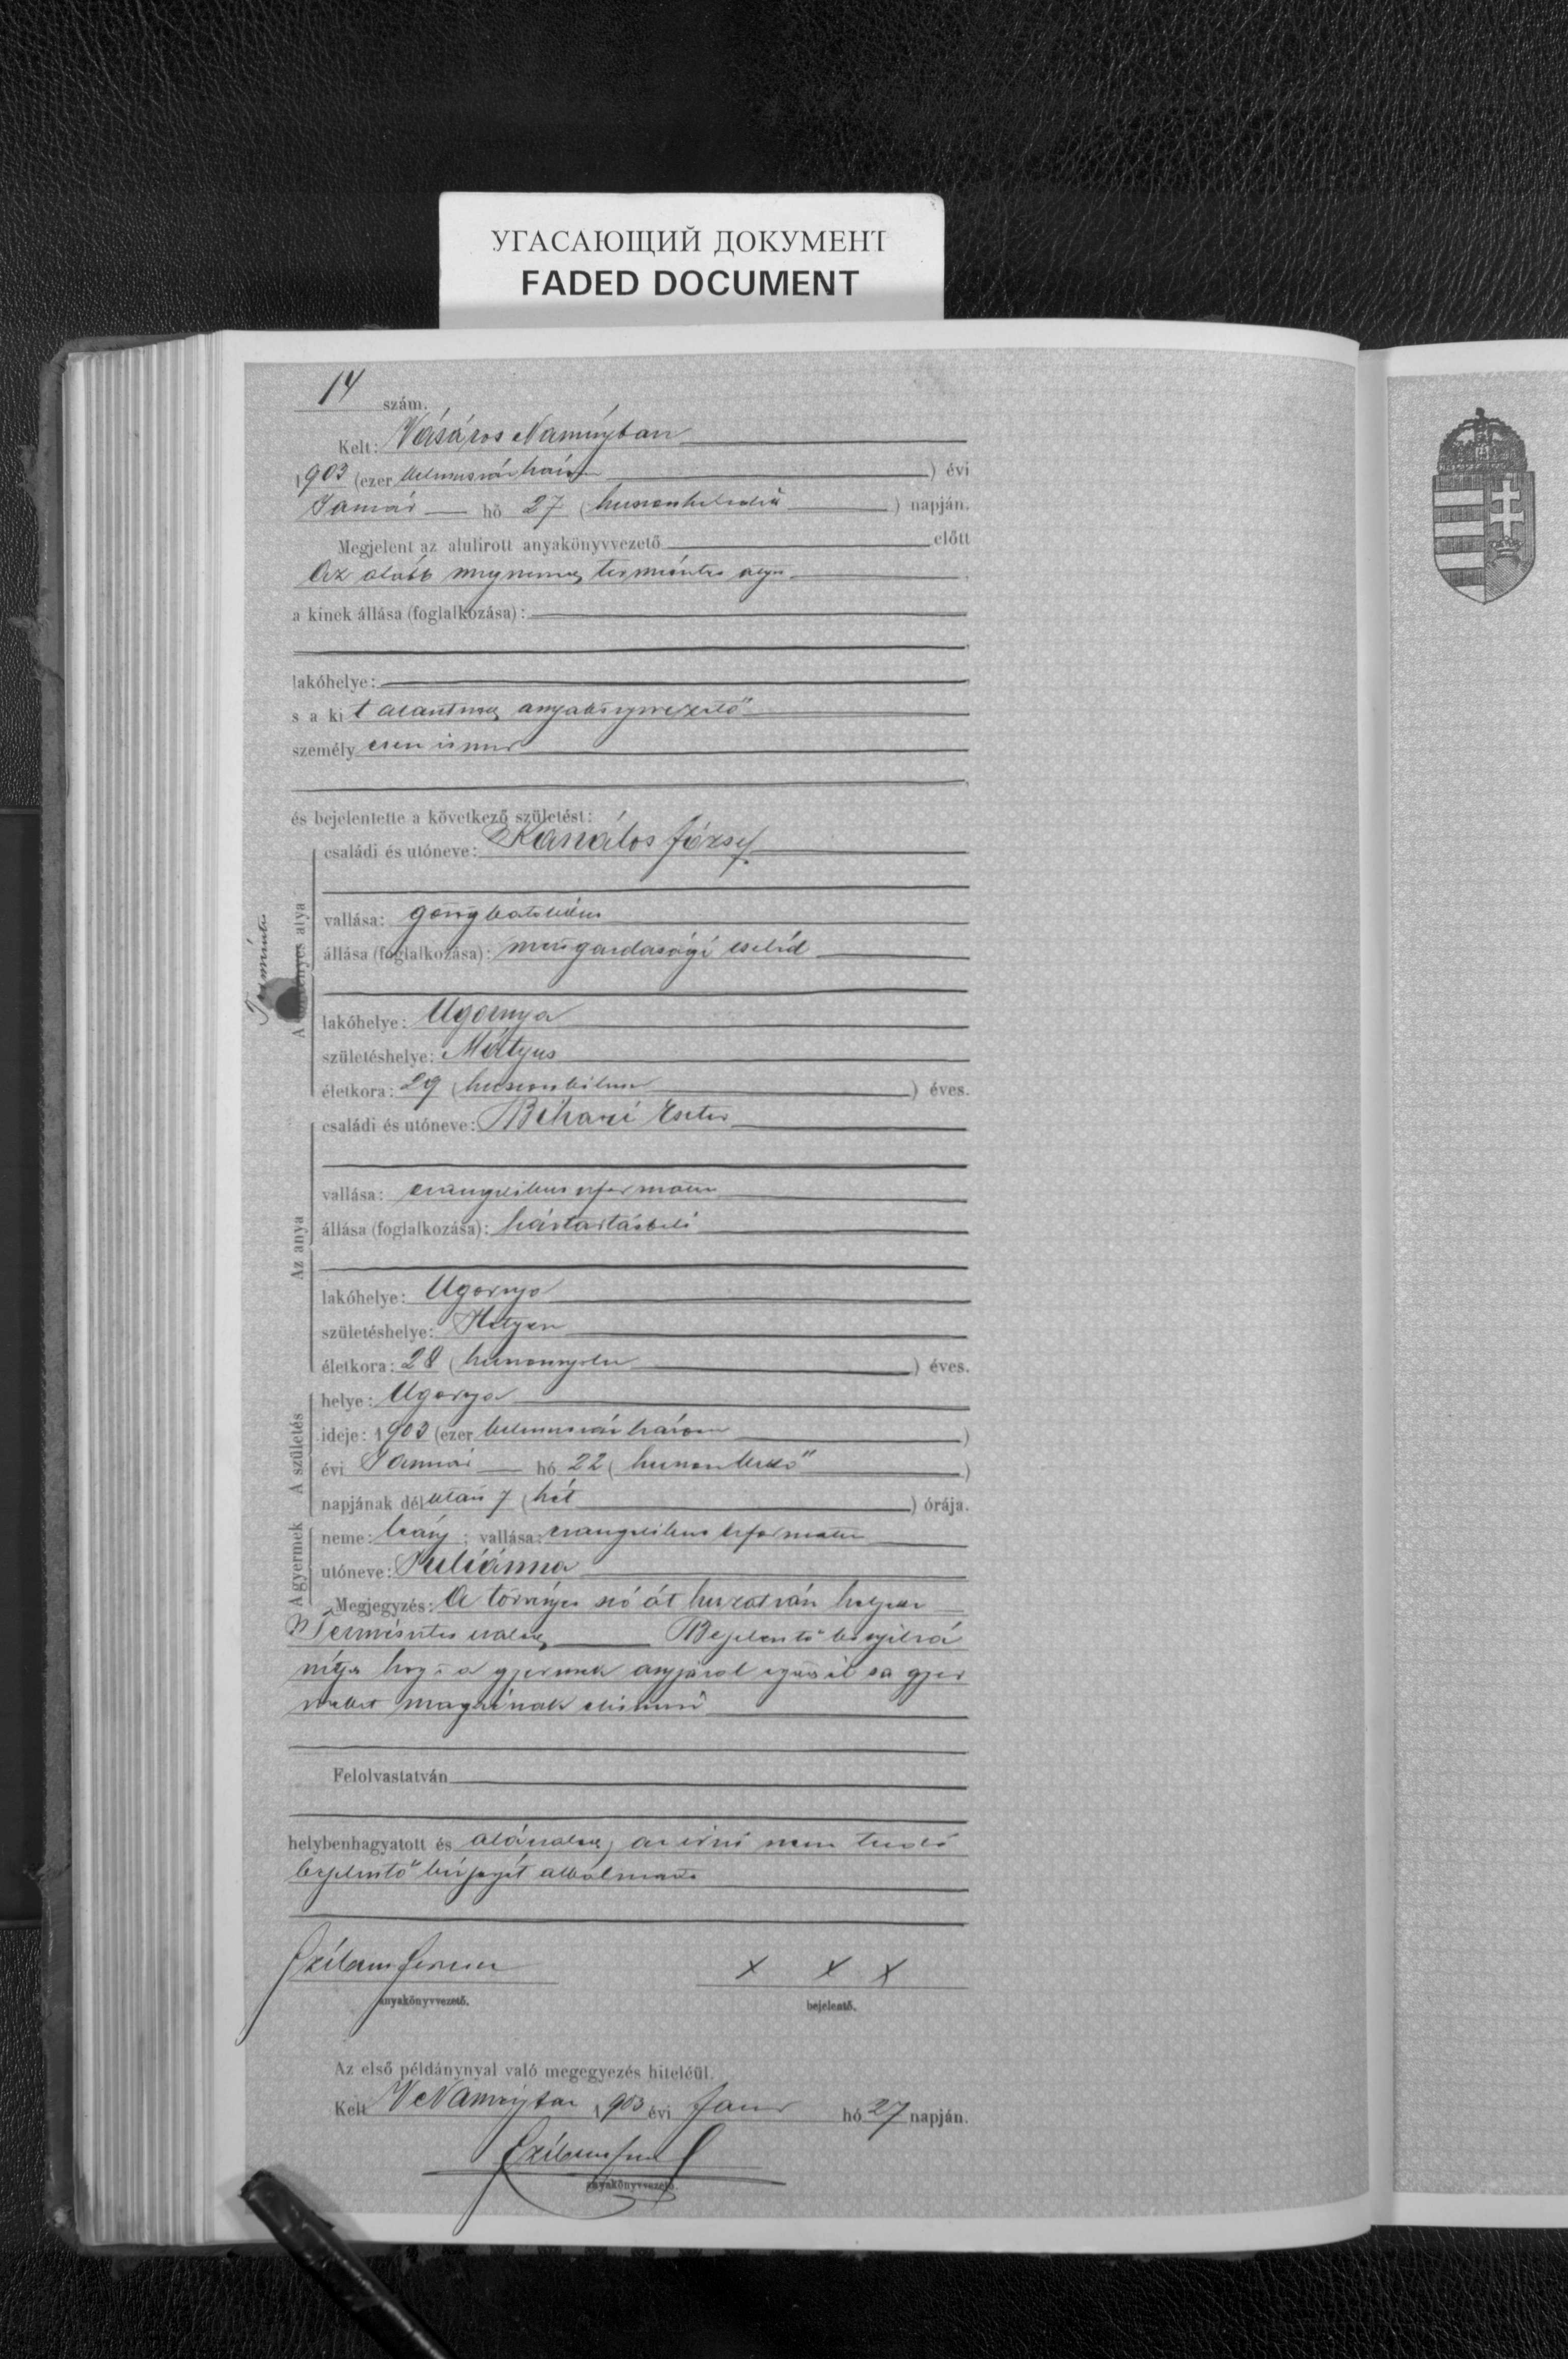 УГАСАЮЩИЙ ДОКУМЕНТ
FADED DOCUMENT
14 szám.
Kelt: Vásáros Naményban
1903 (ezer kilencszázhárom) évi
Január hó 27 (huszonhetedik) napján.
Megjelent az alulirott anyakönyvvezető előtt
Az alább megnevezett természetes atya
a kinek állása (foglalkozása):
lakóhelye:
s a kit alantirott anyakönyvvezető
személyesen ismer
és bejelentette a következő születést:
Természetes
A törvényes atya
családi és utóneve: Kanálos József
vallása: görög katholikus
állása (foglalkozása): mezőgazdasági cseléd
lakóhelye: Ugornya
születéshelye: Mátyus
életkora: 29 (huszonkilenc) éves.
Az anya
családi és utóneve: Bihari Eszter
vallása: evangelikus reformatus
állása (foglalkozása): háztartásbeli
lakóhelye: Ugornya
születéshelye: Hetyen
életkora: 28 (huszonnyolc) éves.
A születés
helye: Ugornya
ideje: 1903 (ezer kilencszázhárom)
évi Január hó 22 (huszonkettő)
napjának délután 7 (hét) órája.
A gyermek
neme: leány; vallása: evangelikus reformatus
utóneve: Juliánna
Megjegyzés: A törvényes szó át huzatván helyette
Természetes Bejelentő
hogy ő a gyermek anyjával sa gyer
meket magáénak elismeri
Felolvastatván
helybenhagyatott és aláíratott, az írni nem tudó
bejelentő kézjegyét alkalmazta
Szilassy Ferencz
anyakönyvvezető.
x x x
bejelentő.
Az első példánynyal való megegyezés hiteléül.
Kelt VNaményban 1903 évi Január hó 27 napján.
anyakönyvvezető.